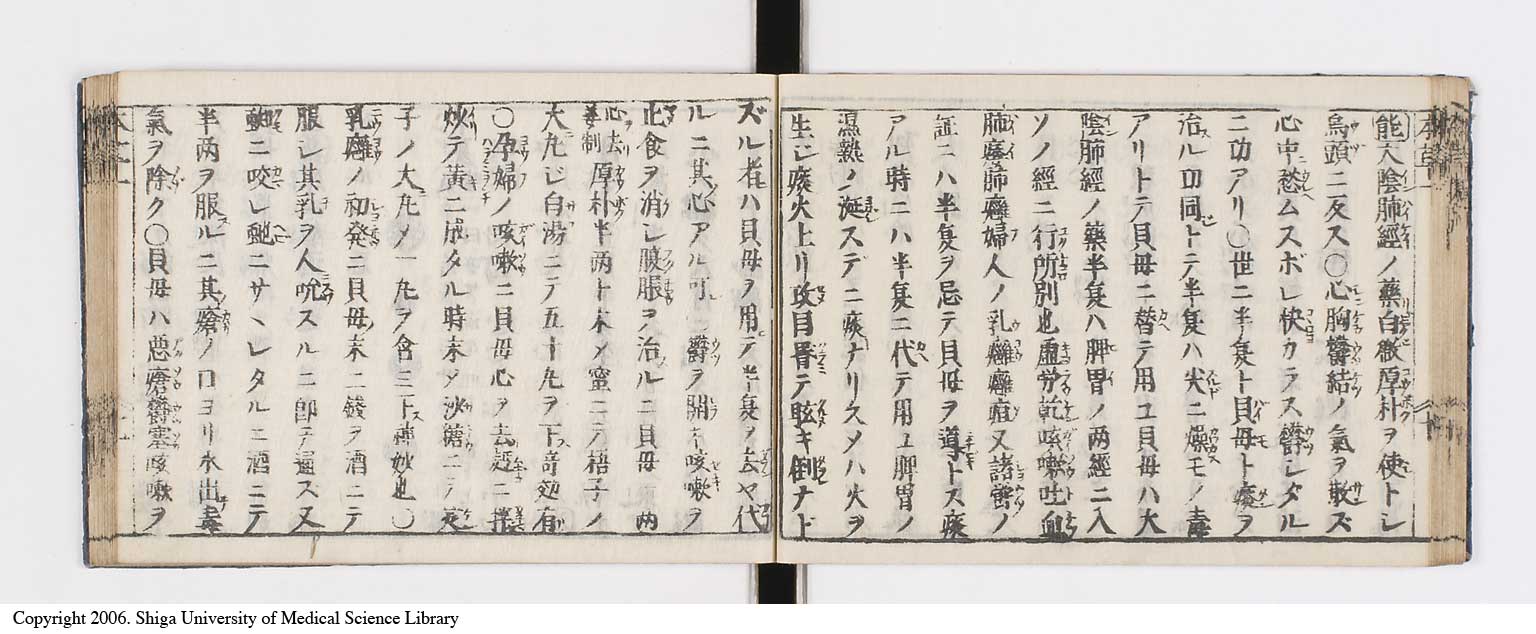 能大陰肺經ノ藥白薇厚朴ヲ使トシ
烏頭ニ反ス〇心胸鬱結ノ氣ヲ散ズ
心中愁ムスボレ快カラス鬱シタル
ニ功アリ〇世ニ半夏ト貝母ト痰ヲ
治ルヿ同トテ半夏ハ尖ニ燥モノ毒
アリトテ貝母ニ替テ用ユ貝母ハ大
陰肺經ノ藥半夏ハ脾胃ノ两經ニ入
ソノ經ニ行所別也虚労乾咳嗽吐血
肺痿肺癰婦人ノ乳癰癰疽又諸欝ノ
証ニハ半夏ヲ忌テ貝母ヲ導トス痰
アル時ニハ半夏ニ代テ用ユ脾胃ノ
濕熱ノ涎スデニ痰ナリスメハ火ヲ
生ジ痰火上リ攻目昏テ眩キ倒ナド
ズル者ハ貝母ヲ用テ半夏ヲ去ヤ代
ルニ其心アル可シ欝ヲ開キ咳嗽ヲ
止食ヲ消シ腹脹ヲ治ルニ貝母一两
心去姜制厚朴半两ト末メ蜜ニテ梧子ノ
大丸ジ白湯ニテ五十丸ヲ下竒効有
〇孕婦ノ咳嗽ニ貝母心ヲ去麪ニ攪
炒テ黄ニ成タル時末メ沙糖ニテ芡
子ノ大丸メ一丸ヲ含三下神妙也〇
乳癰ノ初発ニ貝母ノ末二錢ヲ酒ニテ
服シ其乳ヲ人吮スルニ卽テ通ス又
蜘ニ咬レ虵ニサヽレタルニ酒ニテ
半两ヲ服ルニ其瘡ノ口ヨリ水出毒
氣ヲ除ク〇貝母ハ悪瘡欝塞咳嗽ヲ
Copyright 2006. Shiga University of Medical Science Library